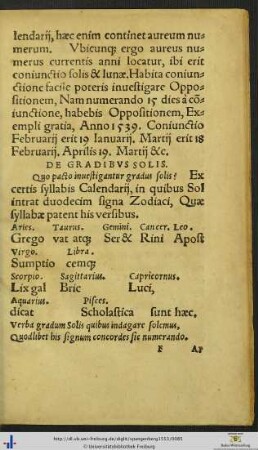 lendarij, hæc enim continet aureum nu-
merum. Vbicunq; ergo aureus nu-
merus currentis anni locatur, ibi erit
coniunctio solis & lunæ. Habita coniun-
ctione facile poteris inuestigare Oppo-
sitionem, Nam numerando 15 dies à cõ-
iunctione, habebis Oppositionem, Ex-
empli gratia, Anno 1539. Coniunctio
Februarij erit 19 Ianuarij, Martij erit 18
Februarij, Aprilis 19. Martij &c.
DE GRADIBVS SOLIS.
Quo pacto inuestigantur gradus solis? Ex
certis syllabis Calendarij, in quibus Sol
intrat duodecim signa Zodiaci, Quæ
syllabæ patent his versibus.
Aries. Taurus. Gemini. Cancer. Leo.
Grego vat atq; Ser& Rini Apost
Virgo. Libra.
Sumptio cemq;
Scorpio. Sagittarius. Capricornus.
Lix gal Bric Luci,
Aquarius. Pisces.
dicat Scholastica sunt hæc,
Verba gradum Solis quibus indagare solemus,
Quodlibet his signum concordes sic numerando.
F AP
© Universitätsbibliothek Freiburg